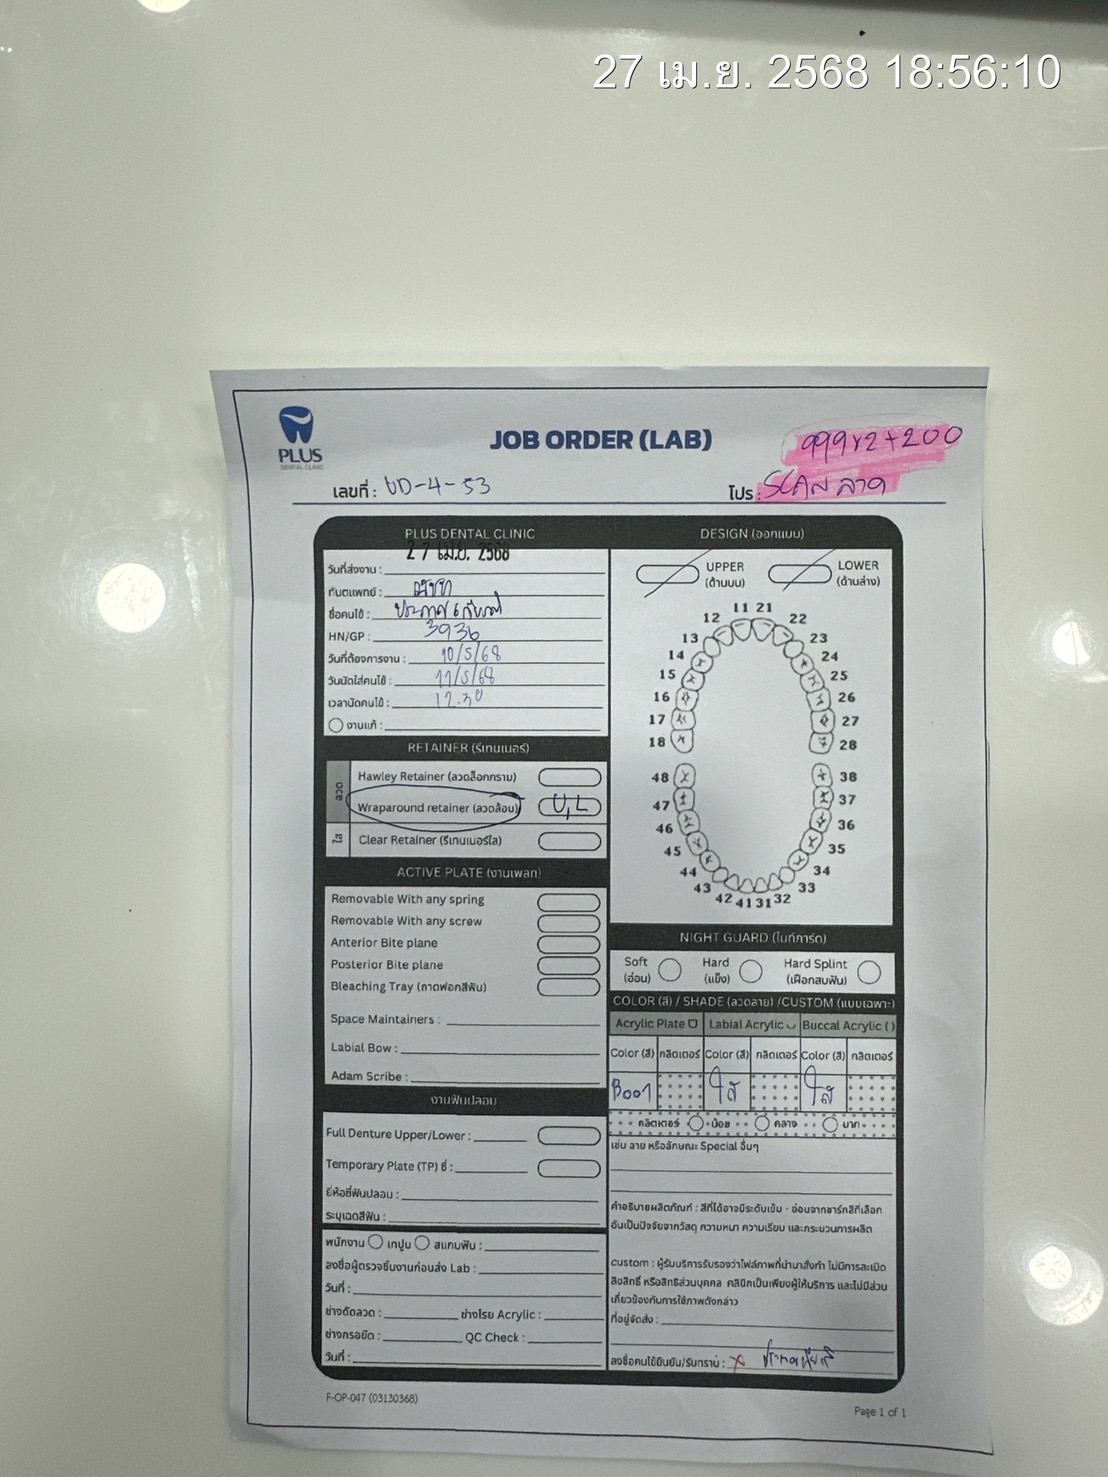 27 เม.ย. 2568 18:56:10
PLUS
DENTAL CLINIC
JOB ORDER (LAB)
999x2+200
เลขที่ : UD-4-53
โปร : SCAN ลวด
PLUS DENTAL CLINIC
27 เม.ย. 2568
วันที่ส่งงาน :
ทันตแพทย์ :
ชื่อคนไข้ :
HN/GP : 3936
วันที่ต้องการงาน : 10/5/68
วันนัดใส่คนไข้ : 11/5/68
เวลานัดคนไข้ : 12.30
งานแก้ :
RETAINER (รีเทนเนอร์)
ลวด
Hawley Retainer (ลวดล็อกกราม)
Wraparound retainer (ลวดล้อม) U,L
ใส
Clear Retainer (รีเทนเนอร์ใส)
ACTIVE PLATE (งานเพลท)
Removable With any spring
Removable With any screw
Anterior Bite plane
Posterior Bite plane
Bleaching Tray (ถาดฟอกสีฟัน)
Space Maintainers :
Labial Bow :
Adam Scribe :
งานฟันปลอม
Full Denture Upper/Lower :
Temporary Plate (TP) ซี่ :
ยี่ห้อซี่ฟันปลอม :
ระบุเฉดสีฟัน :
พนักงาน เทปูน สแกนฟัน :
ลงชื่อผู้ตรวจชิ้นงานก่อนส่ง Lab :
วันที่ :
ช่างดัดลวด : ช่างโรย Acrylic :
ช่างกรอขัด : QC Check :
วันที่ :
DESIGN (ออกแบบ)
UPPER LOWER
(ด้านบน) (ด้านล่าง)
11 21
12 22
13 23
14 24
15 25
16 26
17 27
18 28
48 38
47 37
46 36
45 35
44 34
43 33
42 41 31 32
NIGHT GUARD (ไนท์การ์ด)
Soft Hard Hard Splint
(อ่อน) (แข็ง) (เฝือกสบฟัน)
COLOR (สี) / SHADE (ลวดลาย) /CUSTOM (แบบเฉพาะ)
Acrylic Plate Labial Acrylic Buccal Acrylic ( )
Color (สี) กลิตเตอร์ Color (สี) กลิตเตอร์ Color (สี) กลิตเตอร์
B001 ใส ใส
กลิตเตอร์ น้อย กลาง มาก
เช่น ลาย หรือลักษณะ Special อื่นๆ
คำอธิบายผลิตภัณฑ์ : สีที่ได้อาจมีระดับเข้ม - อ่อนจากชาร์ทสีที่เลือก
อันเป็นปัจจัยจากวัสดุ ความหนา ความเรียบ และกระบวนการผลิต
custom : ผู้รับบริการรับรองว่าไฟล์ภาพที่นำมาสั่งทำ ไม่มีการละเมิด
ลิขสิทธิ์ หรือสิทธิส่วนบุคคล คลินิกเป็นเพียงผู้ให้บริการ และไม่มีส่วน
เกี่ยวข้องกับการใช้ภาพดังกล่าว
ที่อยู่จัดส่ง :
ลงชื่อคนไข้ยืนยัน/รับทราบ : x
F-OP-047 (03130368)
Page 1 of 1